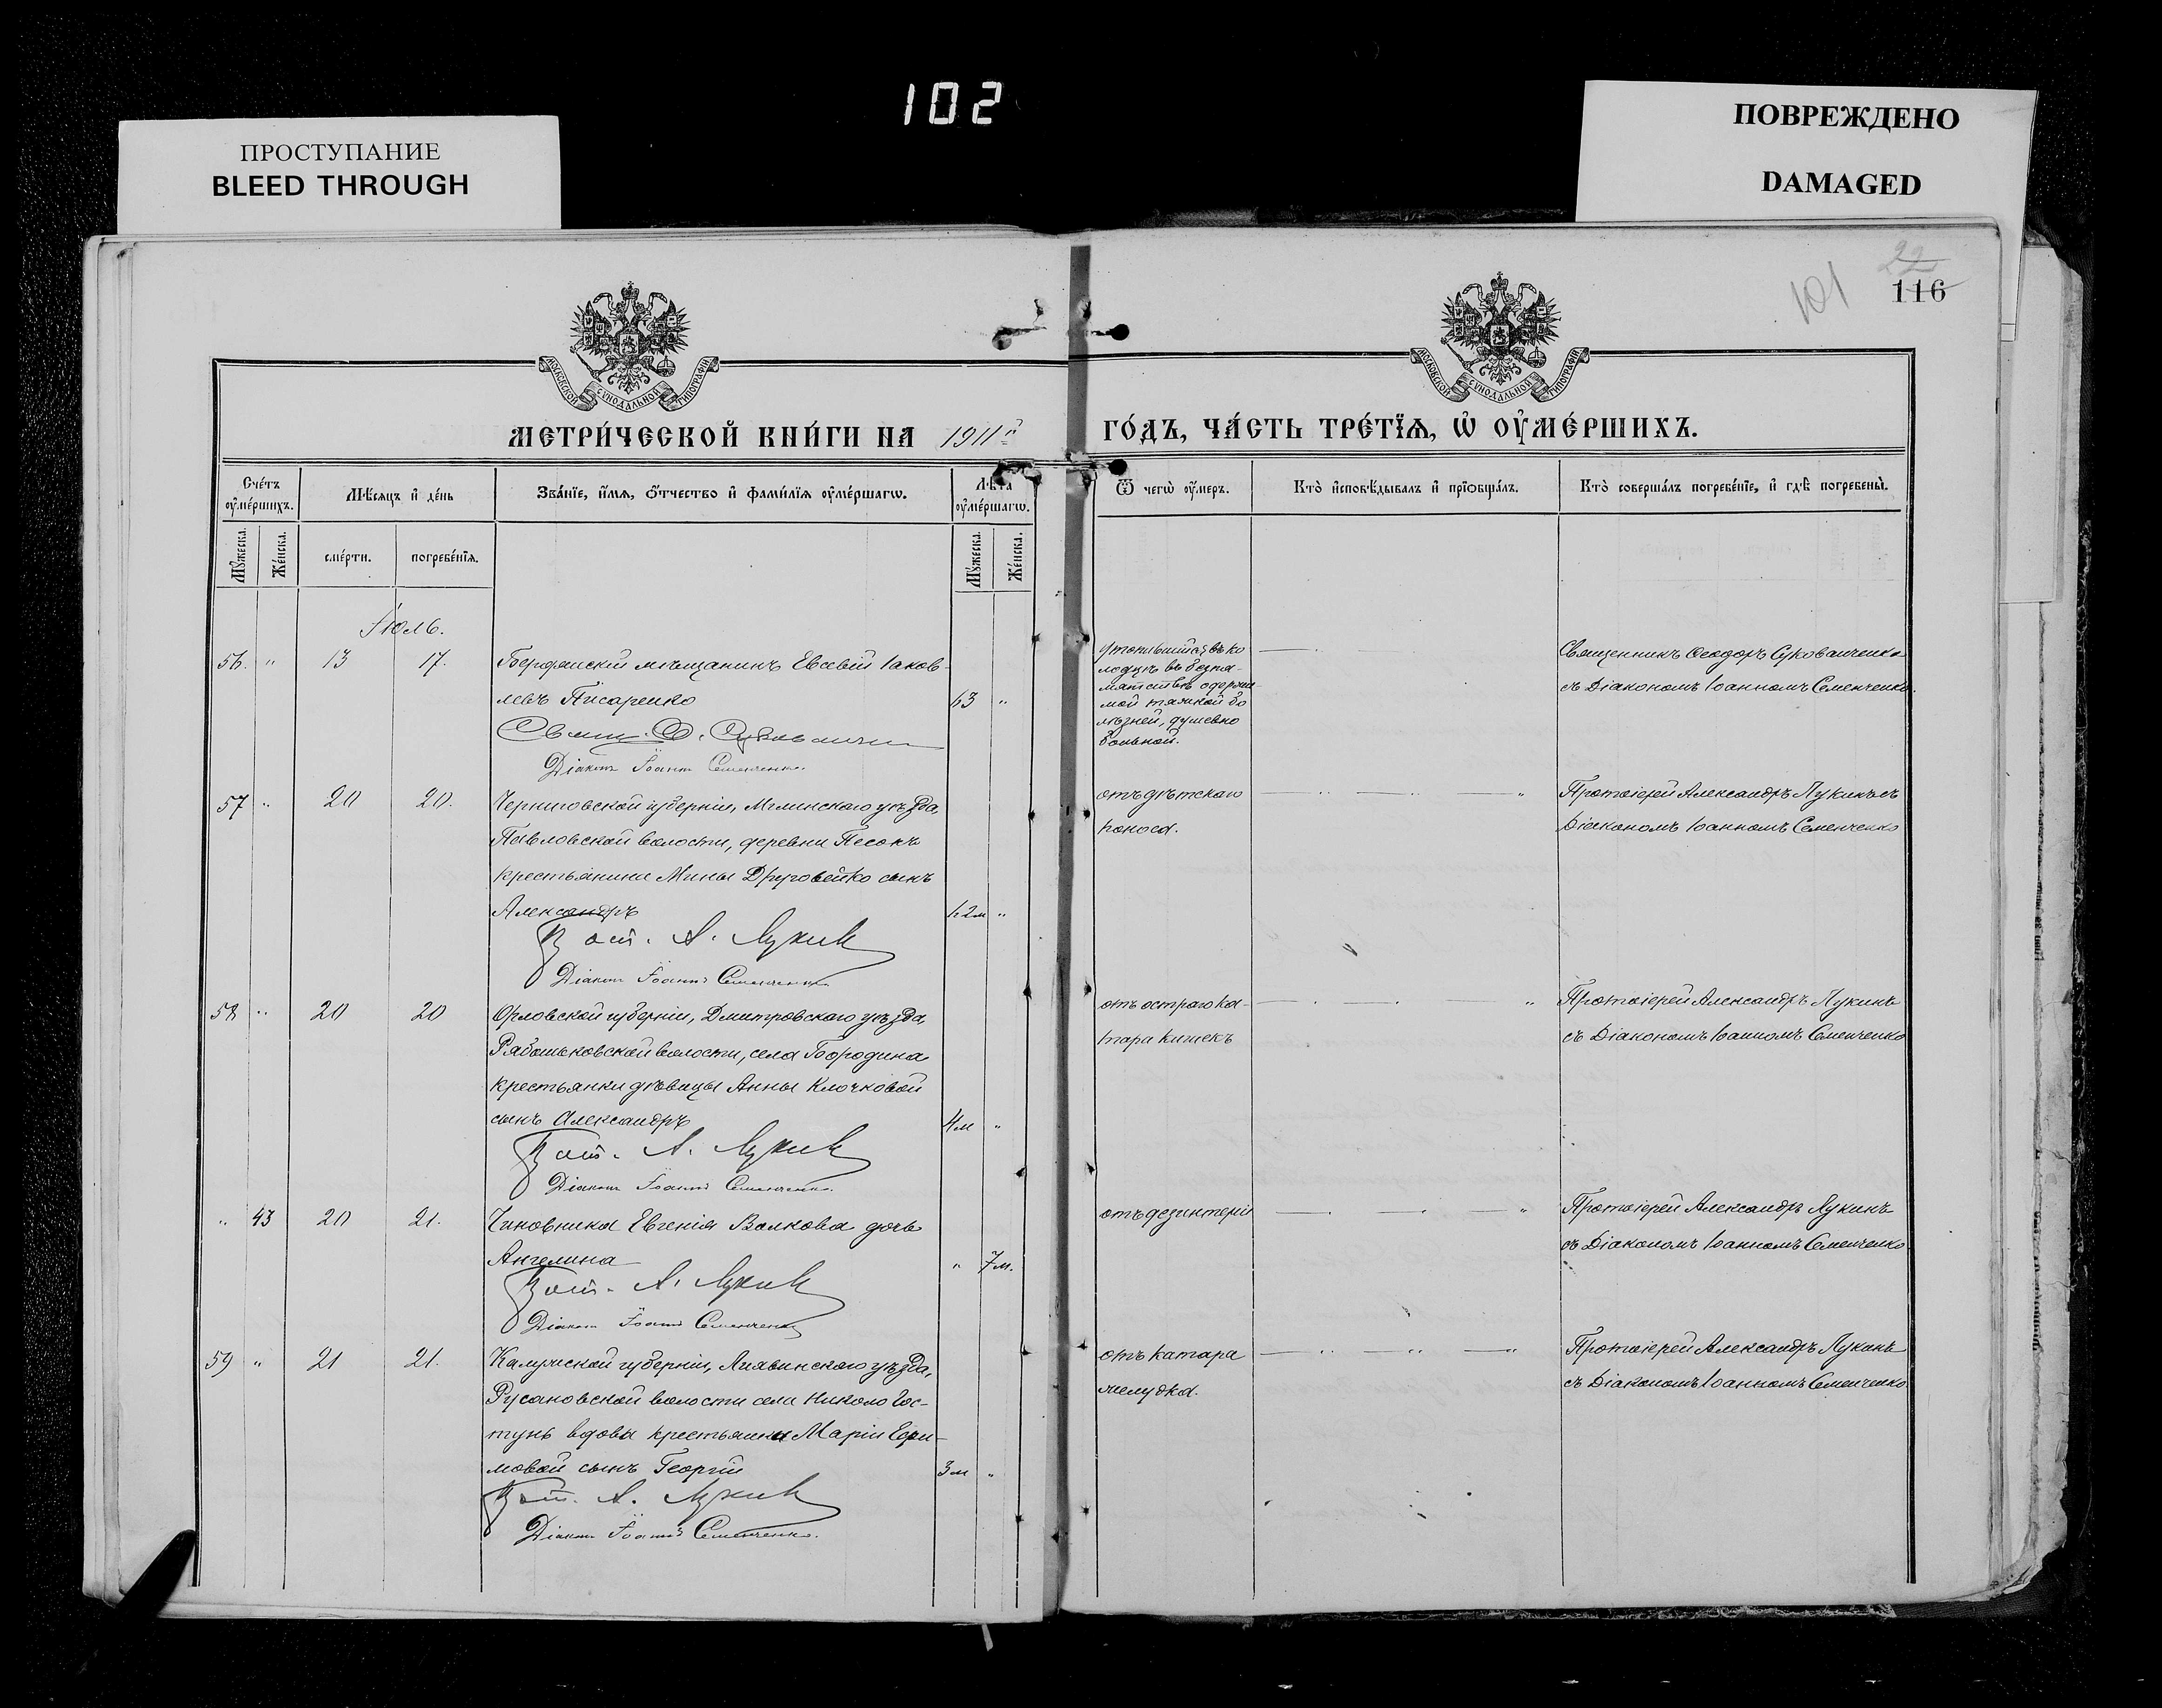 102
ПРОСТУПАНИЕ
BLEED THROUGH
ПОВРЕЖДЕНО
DAMAGED
101
22
116
МОСКОВСКОЙ СѴНОДАЛЬНОЙ ТИПОГРАФІИ
МОСКОВСКОЙ СѴНОДАЛЬНОЙ ТИПОГРАФІИ
МЕТРИ́ЧЕСКОЙ КНИ́ГИ НА 1911й ГО́ДЪ, ЧА́СТЬ ТРЕ́ТЇѦ, Ѡ҆ ОУ҆МЕ́РШИХЪ.
Сче́тъ оу҆ме́ршихъ.
Мѣ́сяцъ и҆ де́нь
Зва́нїе, и҆́мя, ѻ҆́тчество и҆ фами́лїя оу҆ме́ршагѡ.
Лѣ́та оу҆ме́ршагѡ.
Ѿ чегѡ̀ оу҆́меръ.
Кто̀ и҆сповѣ́дывалъ и҆ прїѡбща́лъ.
Кто̀ соверша́лъ погребе́нїе, и҆ гдѣ̀ погребены̀.
Мꙋ́жеска.
Же́нска.
сме́рти.
погребе́нїя.
Мꙋ́жеска.
Же́нска.
Іюль.
56. " 13 17. Бердянскій мѣщанинъ Евсевій Іаков-
левъ Писаренко "
Діаконъ Іоаннъ Семенченко.
утопившійся въ ко
лодцѣ въ безпа-
мятствѣ одержи-
мой тяжкой бо
лѣзней, душевно
больной.
Священникъ Ѳеодоръ Сукованченко
съ Діакономъ Іоанномъ Семенченко.
57 " 20 20. Черниговской губерніи, Мглинскаго уѣзда,
Павловской волости, деревни Песокъ
крестьянина Мины Друговейко сынъ
Александръ "
Прот. А. Лукинъ
Діаконъ Іоаннъ Семенченко
отъ дѣтскаго
поноса.
Протоіерей Александръ Лукинъ съ
Діакономъ Іоанномъ Семенченко
58 " 20 20 Орловской губерніи, Дмитровскаго уѣзда,
волости, села Бородина
крестьянки дѣвицы Анны Клочковой
сынъ Александръ 4м "
Прот. А. Лукинъ
Діаконъ Іоаннъ Семенченко.
отъ остраго ка-
тара кишекъ
Протоіерей Александръ Лукинъ
съ Діакономъ Іоанномъ Семенченко
" 43 20 21. Чиновника Евгенія Волкова дочь
Ангелина " 7м.
Прот. А. Лукинъ
Діаконъ Іоаннъ Семенченко
отъ дезинтеріи
Протоіерей Александръ Лукинъ
съ Діакономъ Іоанномъ Семенченко
59 " 21 21. Калужской губерніи, Лихвинскаго уѣзда,
Русановской волости села Николо Гос-
тунь вдовы крестьянки Маріи Ефи-
мовой сынъ Георгій 3м "
Прот. А. Лукинъ
Діаконъ Іоаннъ Семенченко.
отъ катара
желудка.
Протоіерей Александръ Лукинъ
съ Діакономъ Іоанномъ Семенченко.